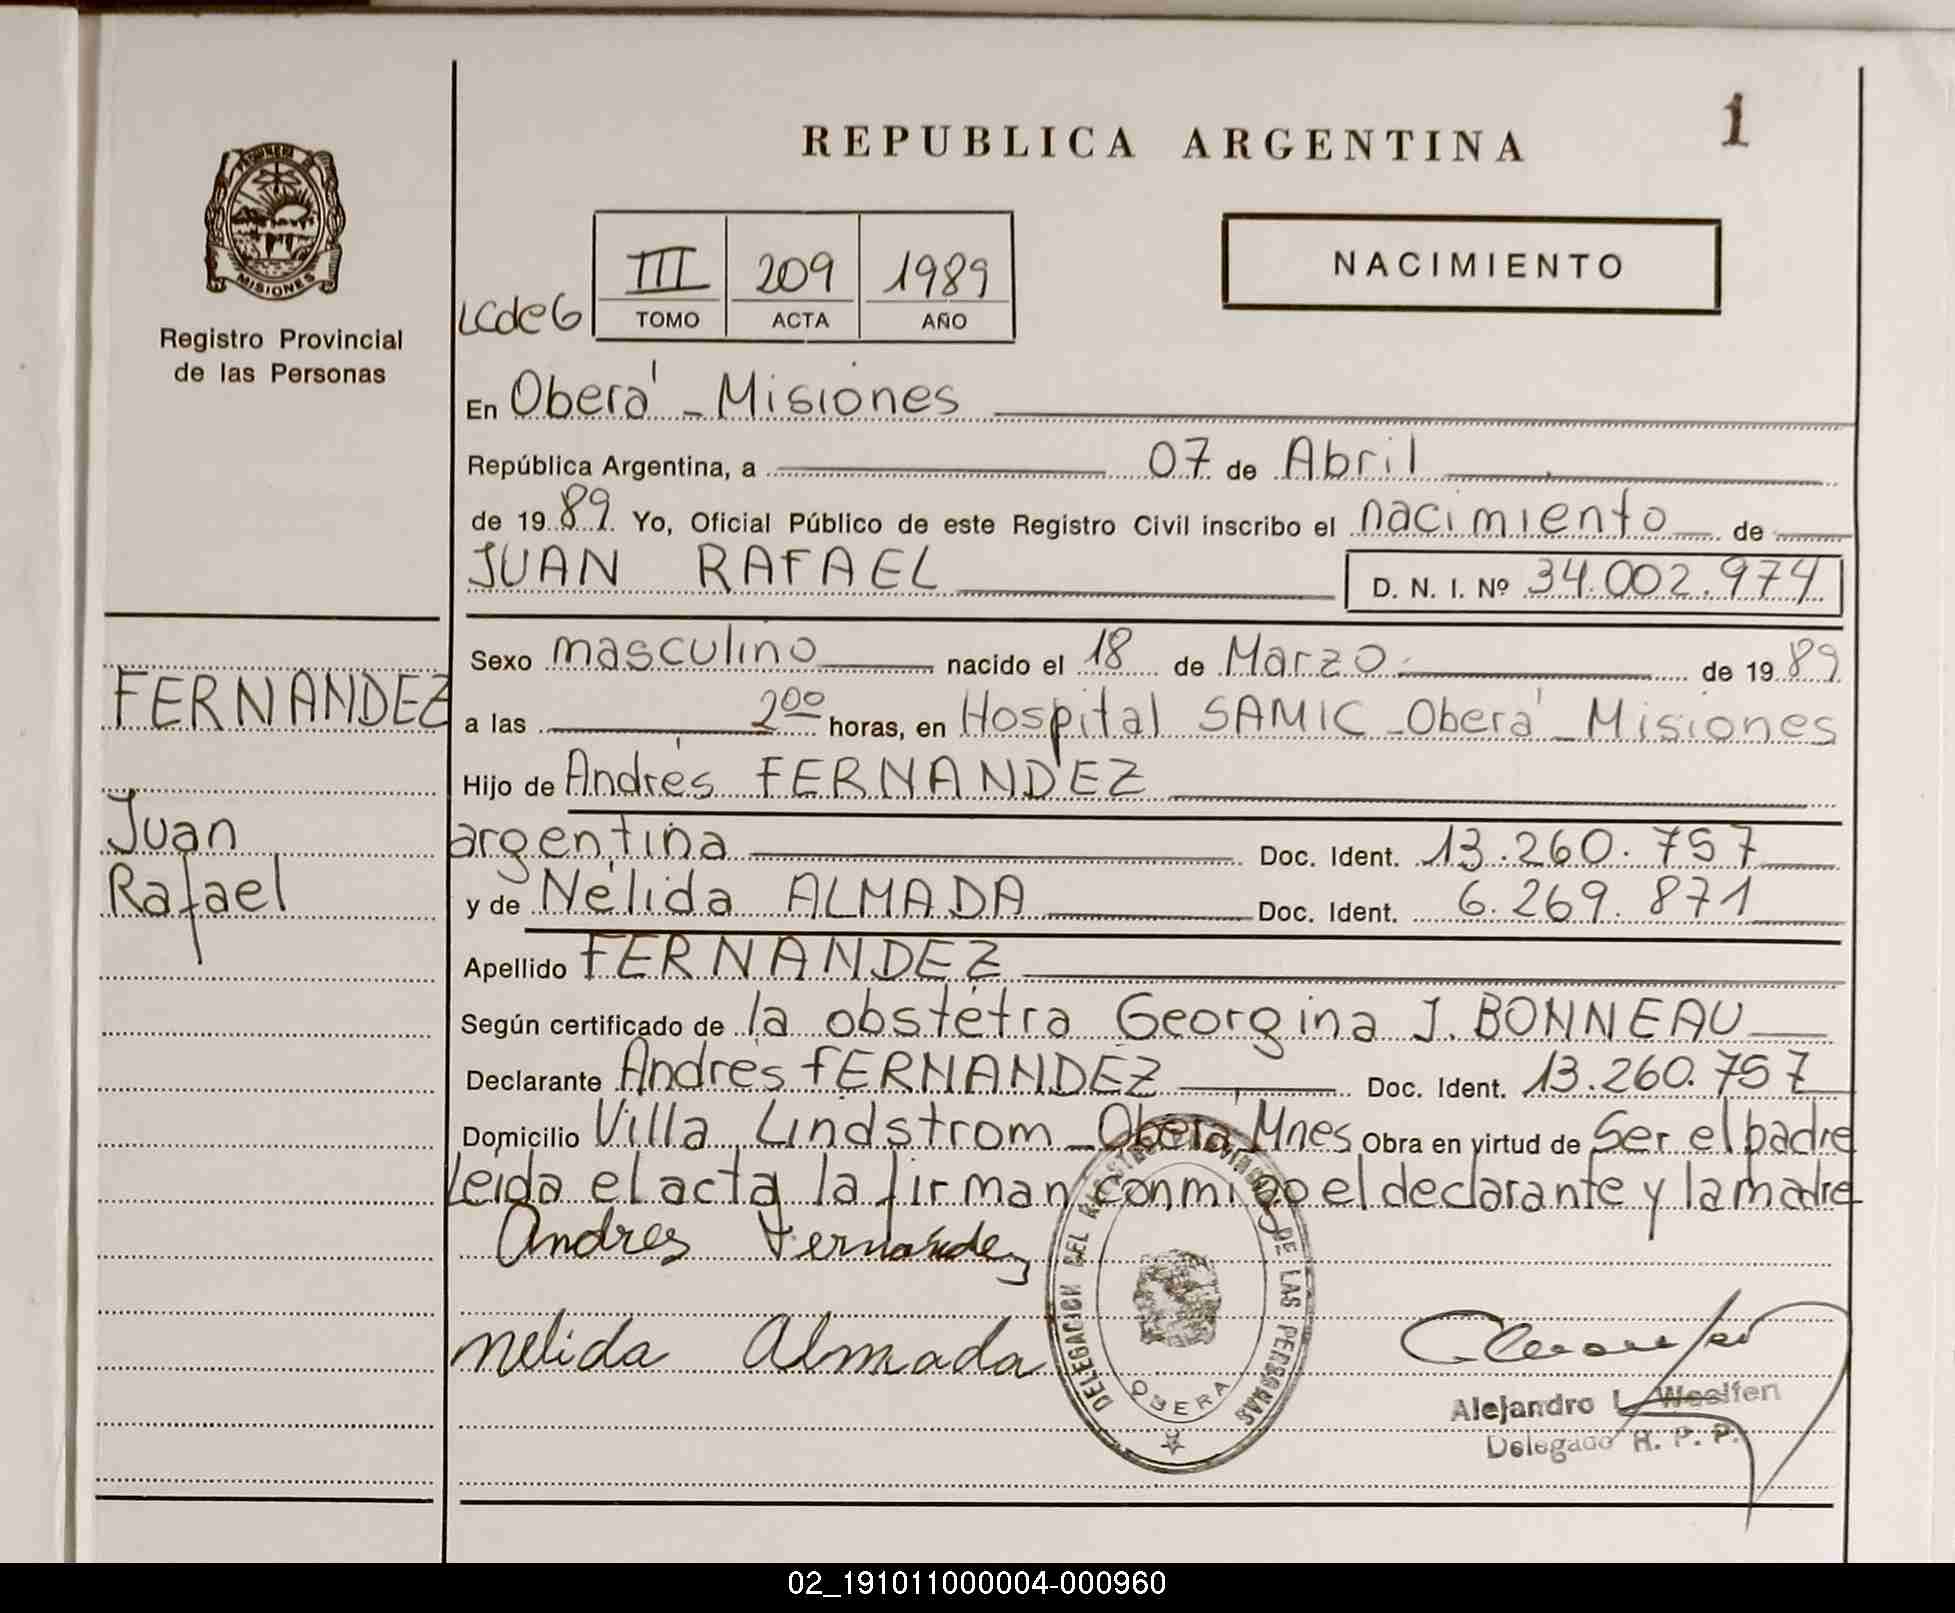 REPUBLICA ARGENTINA
1
MISIONES
Registro Provincial
de las Personas
LCde6
III 209 1989
TOMO ACTA AÑO
NACIMIENTO
En Oberá - Misiones
República Argentina, a 07 de Abril
de 1989. Yo, Oficial Público de este Registro Civil inscribo el nacimiento de
JUAN RAFAEL D. N. I. Nº 34.002.974
Sexo masculino nacido el 18 de Marzo de 1989
FERNANDEZ
a las 2⁰⁰ horas, en Hospital SAMIC - Oberá - Misiones
Hijo de Andrés FERNANDEZ
Juan
argentina Doc. Ident. 13.260.757
Rafael
y de Nélida ALMADA Doc. Ident. 6.269.871
Apellido FERNANDEZ
Según certificado de la obstétra Georgina J. BONNEAU
Declarante Andrés FERNANDEZ Doc. Ident. 13.260.757
Domicilio Villa Lindstrom - Oberá Mnes Obra en virtud de Ser el padre
Leida el acta la firman conmigo el declarante y la madre
Andres Fernández
nelida Almada
DELEGACION DEL REGISTRO PROVINCIAL DE LAS PERSONAS
OBERA
Alejandro L.
Delegado R. P. P.
02_191011000004-000960